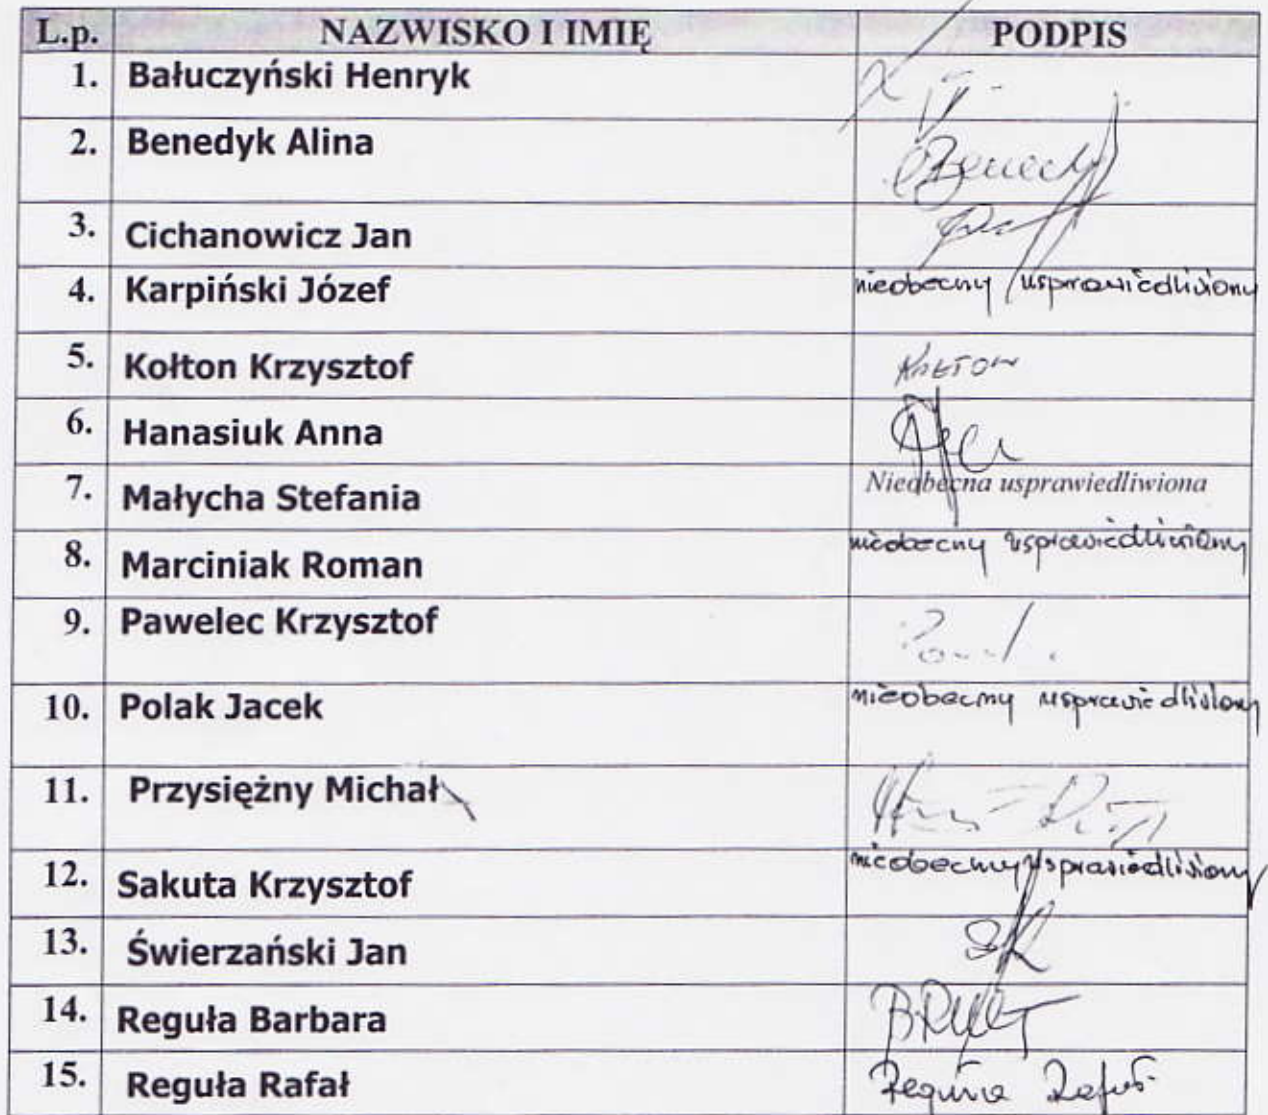 L.p. NAZWISKO I IMIĘ PODPIS
1. Bałuczyński Henryk
2. Benedyk Alina
3. Cichanowicz Jan
4. Karpiński Józef nieobecny usprawiedliwiony
5. Kołton Krzysztof KOŁTON
6. Hanasiuk Anna
7. Małycha Stefania Nieobecna usprawiedliwiona
8. Marciniak Roman nieobecny usprawiedliwiony
9. Pawelec Krzysztof
10. Polak Jacek nieobecny usprawiedliwiony
11. Przysiężny Michał
12. Sakuta Krzysztof nieobecny usprawiedliwiony
13. Świerzański Jan
14. Reguła Barbara
15. Reguła Rafał Reguła Rafał